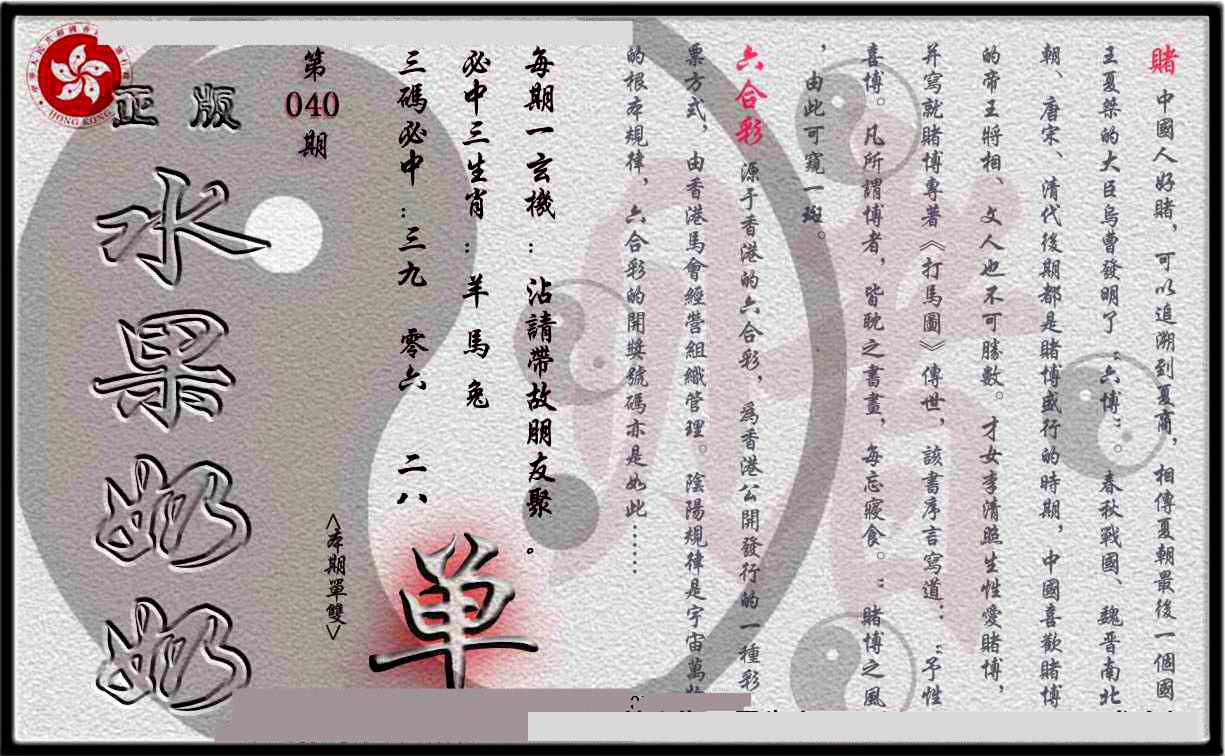 賭 中國人好賭，可以追溯到夏商，相傳夏朝最後一個國
王夏桀的大臣烏曹發明了“六博”。春秋戰國、魏晋南北
朝、唐宋、清代後期都是賭博盛行的時期，中國喜歡賭博
的帝王將相、文人也不可勝數。才女李清照生性愛賭博，
并寫就賭博專著《打馬圖》傳世，該書序言寫道：“予性
喜博。凡所謂博者，皆耽之書畫，每忘寢食。”賭博之風
，由此可窺一斑。
六合彩 源于香港的六合彩，為香港公開發行的一種彩
票方式，由香港馬會經營組織管理。陰陽規律是宇宙萬物
的根本規律，六合彩的開獎號碼亦是如此……
每期一玄機：沾請帶故朋友聚。
必中三生肖：羊 馬 兔
三碼必中：三九 零六 二八
<本期單雙>
单
第
040
期
正版
水果奶奶
HONG KONG